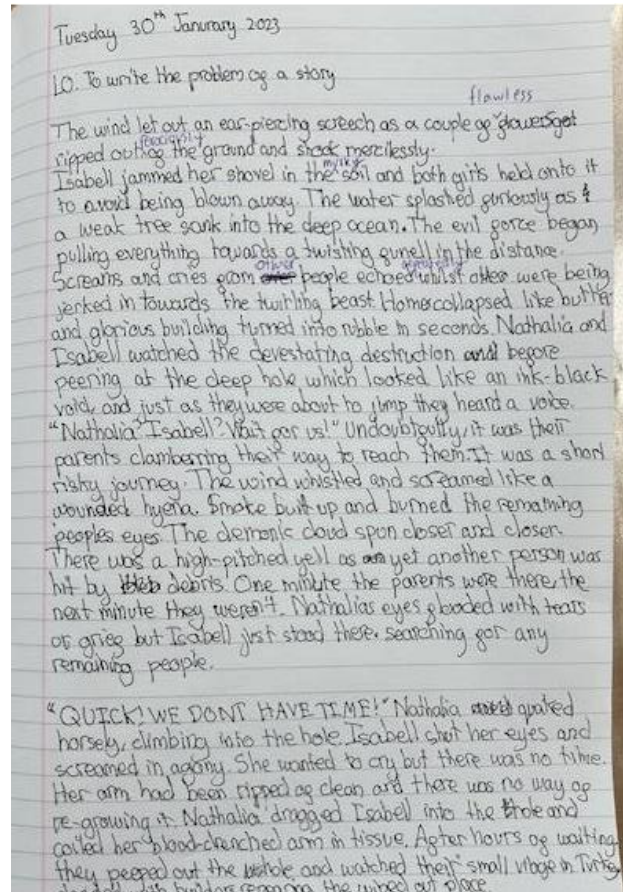 Tuesday 30th Janurary 2023
LO. To write the problem of a story
flawless
The wind let out an ear-piercing screech as a couple of flowers got
ferociously
ripped out of the ground and shook mercilessly.
Isabell jammed her shovel in the soil and both girls held onto it
to avoid being blown away. The water splashed furiously as
a weak tree sank into the deep ocean. The evil force began
pulling everything towards a twisting funell in the distance.
other
Screams and cries from people echoed whilst were being
jerked in towards the twirling beast. Homes collapsed like butter
and glorious building turned into rubble in seconds. Nathalia and
Isabell watched the devestating destruction before
peering at the deep hole which looked like an ink-black
void, and just as they were about to jump they heard a voice.
"Nathalia? Isabell? Wait for us!" Undoubtfully, it was their
parents clamberring their way to reach them. It was a short
risky journey. The wind whistled and screamed like a
wounded hyena. Smoke built up and burned the remaining
peoples eyes. The demonic cloud spun closer and closer.
There was a high-pitched yell as yet another person was
hit by debris. One minute the parents were there, the
next minute they weren't. Nathalias eyes flooded with tears
of grief but Isabell just stood there. searching for any
remaining people.
"QUICK! WE DONT HAVE TIME!" Nathalia quaked
horsely, climbing into the hole. Isabell shut her eyes and
screamed in agony. She wanted to cry but there was no time.
Her arm had been ripped of clean and there was no way of
re-growing it. Nathalia dragged Isabell into the hole and
coiled her blood-drenched arm in tissue. After hours of waiting
they peeped out the hole and watched their small vilage in Turkey
with builders the wiped out place